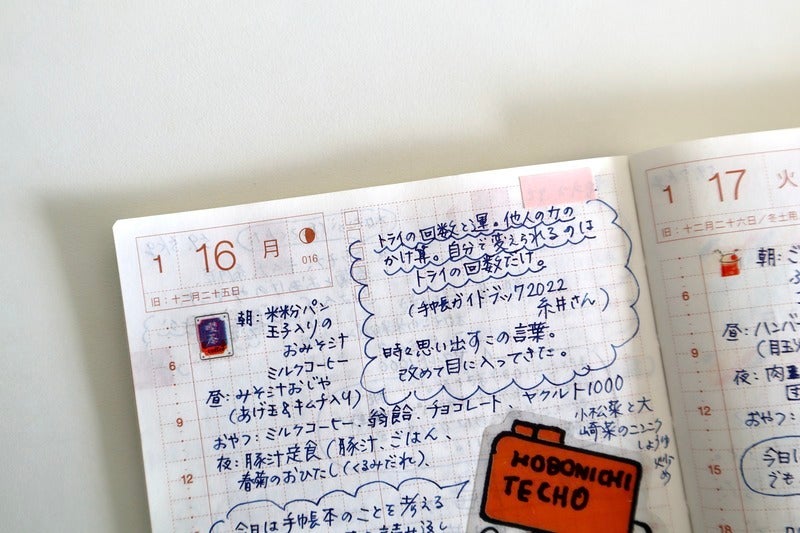 1 16 月
016
旧:十二月二十五日
トライの回数と運。他人の力の
かけ算。自分で変えられるのは
トライの回数だけ。
(手帳ガイドブック2022
糸井さん)
時々思い出すこの言葉。
改めて目に入ってきた。
喫茶
朝:米粉パン
玉子入りの
おみそ汁
ミルクコーヒー
昼:みそ汁おじや
(あげ玉&キムチ入り)
おやつ:ミルクコーヒー、翁飴、チョコレート、ヤクルト1000
夜:豚汁定食(豚汁、ごはん、
春菊のおひたし(くるみだれ)、
小松菜と大
崎菜のニンニク
しょうゆ炒め
今日は手帳本のことを考える
6
9
12
HOBONICHI
TECHO
1 17 火
旧:十二月二十六日/冬土用
朝:ご
昼:ハンバー
(目玉
夜:肉
おやつ:
今日は
でも
6
9
12
15